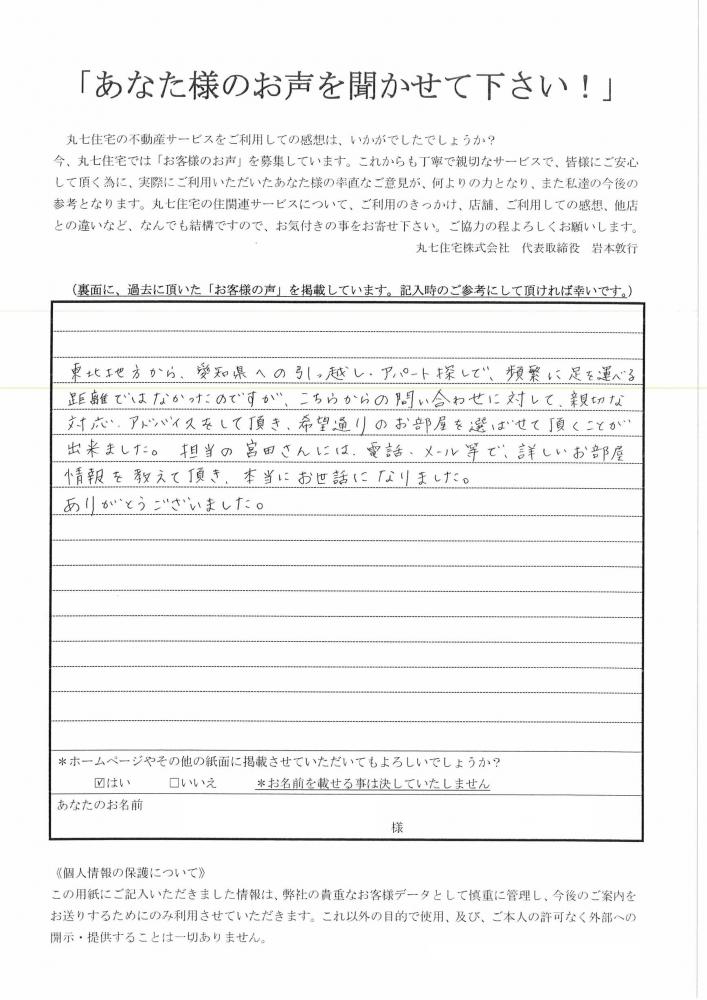 「あなた様のお声を聞かせて下さい！」
丸七住宅の不動産サービスをご利用しての感想は、いかがでしたでしょうか？
今、丸七住宅では「お客様のお声」を募集しています。これからも丁寧で親切なサービスで、皆様にご安心
して頂く為に、実際にご利用いただいたあなた様の率直なご意見が、何よりの力となり、また私達の今後の
参考となります。丸七住宅の住関連サービスについて、ご利用のきっかけ、店舗、ご利用しての感想、他店
との違いなど、なんでも結構ですので、お気付きの事をお寄せ下さい。ご協力の程よろしくお願いします。
丸七住宅株式会社　代表取締役　岩本敦行
（裏面に、過去に頂いた「お客様の声」を掲載しています。記入時のご参考にして頂ければ幸いです。）
東北地方から、愛知県への引っ越し・アパート探しで、頻繁に足を運べる
距離ではなかったのですが、こちらからの問い合わせに対して、親切な
対応・アドバイスをして頂き、希望通りのお部屋を選ばせて頂くことが
出来ました。担当の宮田さんには、電話・メール等で、詳しいお部屋
情報を教えて頂き、本当にお世話になりました。
ありがとうございました。
＊ホームページやその他の紙面に掲載させていただいてもよろしいでしょうか？
☑はい　□いいえ　＊お名前を載せる事は決していたしません
あなたのお名前
様
《個人情報の保護について》
この用紙にご記入いただきました情報は、弊社の貴重なお客様データとして慎重に管理し、今後のご案内を
お送りするためにのみ利用させていただきます。これ以外の目的で使用、及び、ご本人の許可なく外部への
開示・提供することは一切ありません。